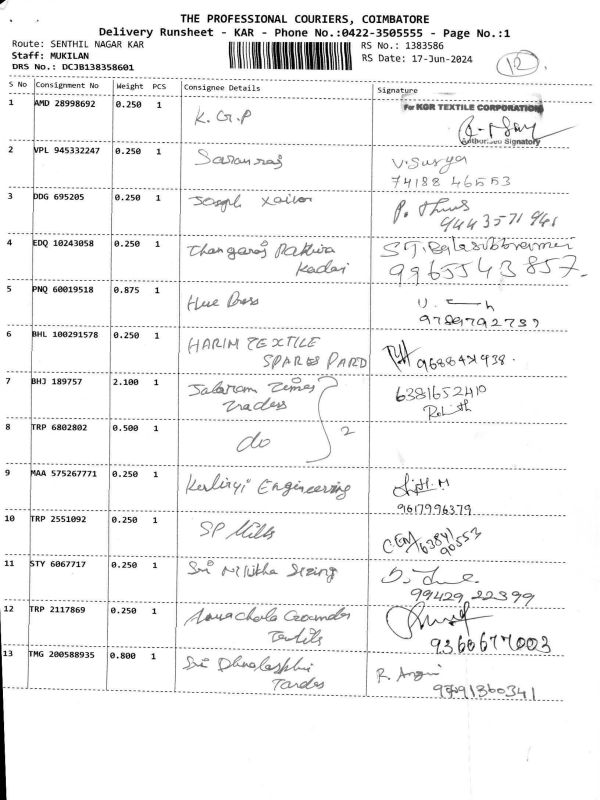 THE PROFESSIONAL COURIERS, COIMBATORE
Delivery Runsheet - KAR - Phone No.:0422-3505555 - Page No.:1
Route: SENTHIL NAGAR KAR RS No.: 1383586
Staff: MUKILAN RS Date: 17-Jun-2024
DRS No.: DCJB138358601
12
S No Consignment No Weight PCS Consignee Details Signature
1 AMD 28998692 0.250 1 K.G.P For KGR TEXTILE CORPORATION
Authorised Signatory
2 VPL 945332247 0.250 1 Saranraj V.Surya
74188 46553
3 DDG 695205 0.250 1 Joseph Xavier P.
9443571961
4 EDQ 10243058 0.250 1 Thangaraj Kadai S.T.
9965543857.
5 PNQ 60019518 0.875 1
9789792739
6 BHL 100291578 0.250 1 HARIM TEXTILE
SPARES PARD 9688421938.
7 BHJ 189757 2.100 1 Jalaram Times 6381652410
Traders Rohith
8 TRP 6802802 0.500 1 do 2
9 MAA 575267771 0.250 1 Engineering
9617996379
10 TRP 2551092 0.250 1 SP Mills 63841
90553
11 STY 6067717 0.250 1 Sri Sizing
99429 22399
12 TRP 2117869 0.250 1
Textils 9366677003
13 TMG 200588935 0.800 1 Sri R.
Tardes